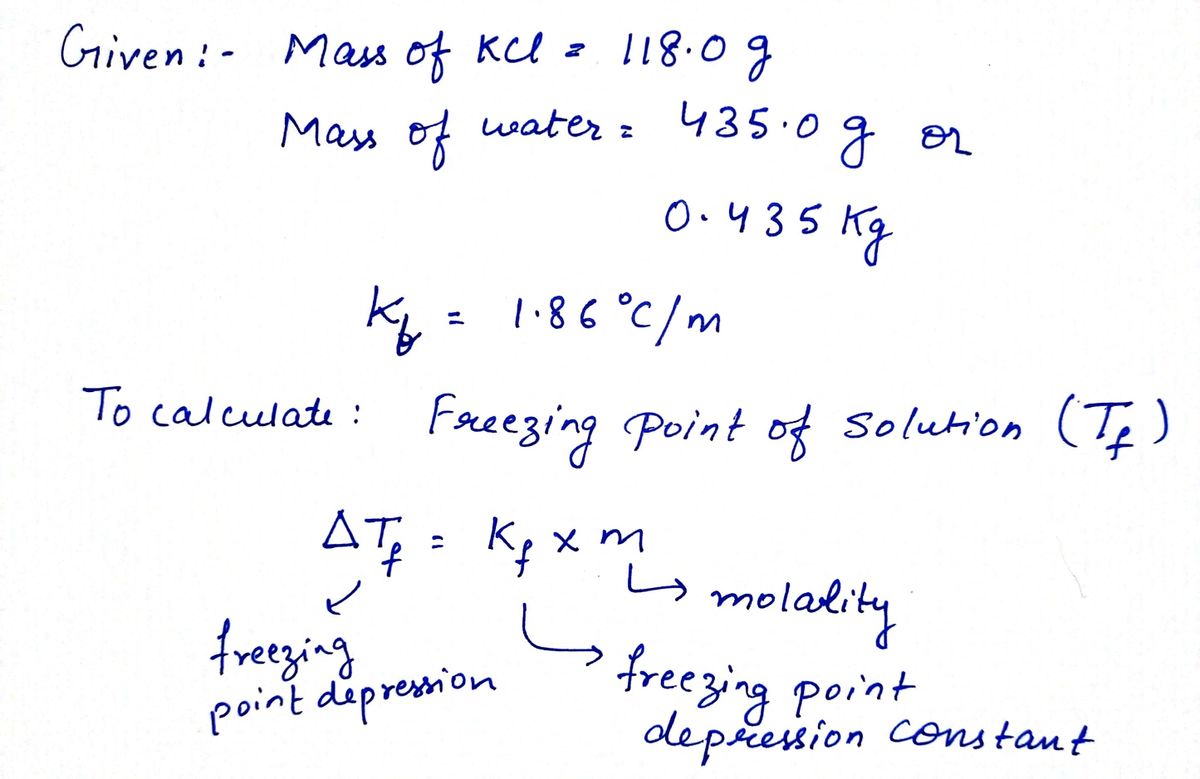 Given :- Mass of KCl = 118.0 g
Mass of water = 435.0 g or
0.435 Kg
Kf = 1.86 °C/m
To calculate : Freezing point of solution (Tf)
ΔTf = Kf x m
↳ molality
freezing
↳ freezing point
point depression
depression constant